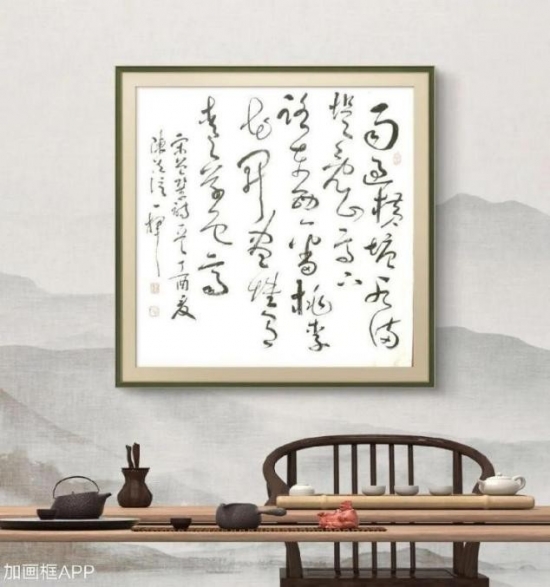 雨過橫塘水滿
堤亂山高下
路東西一番桃李
花開盡惟有
青青草色齊
宋曾鞏詩 丁酉夏
加画框APP